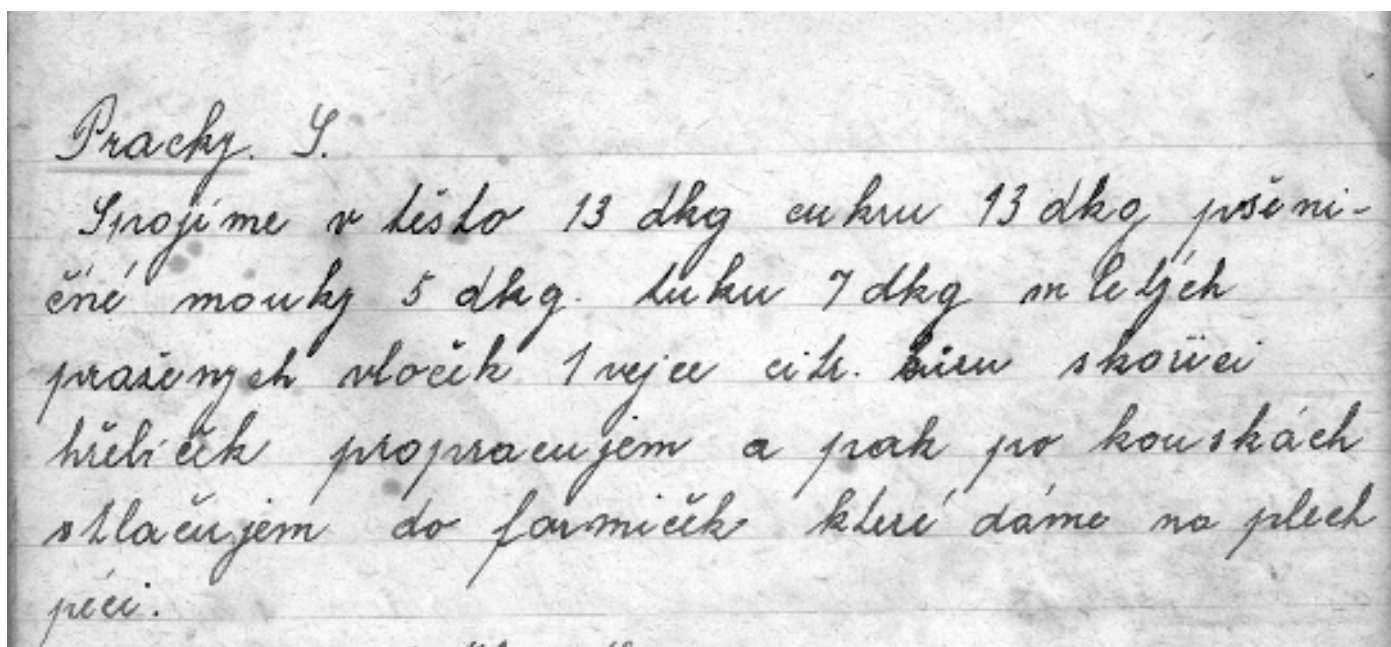 Pracky. S.
Spojíme v těsto 13 dkg cukru 13 dkg pšeni-
čné mouky 5 dkg. tuku 7 dkg mletých
pražených vloček 1 vejce citr. kůru skořici
hřebíček propracujem a pak po kouskách
stlačujem do formiček které dáme na plech
péci.